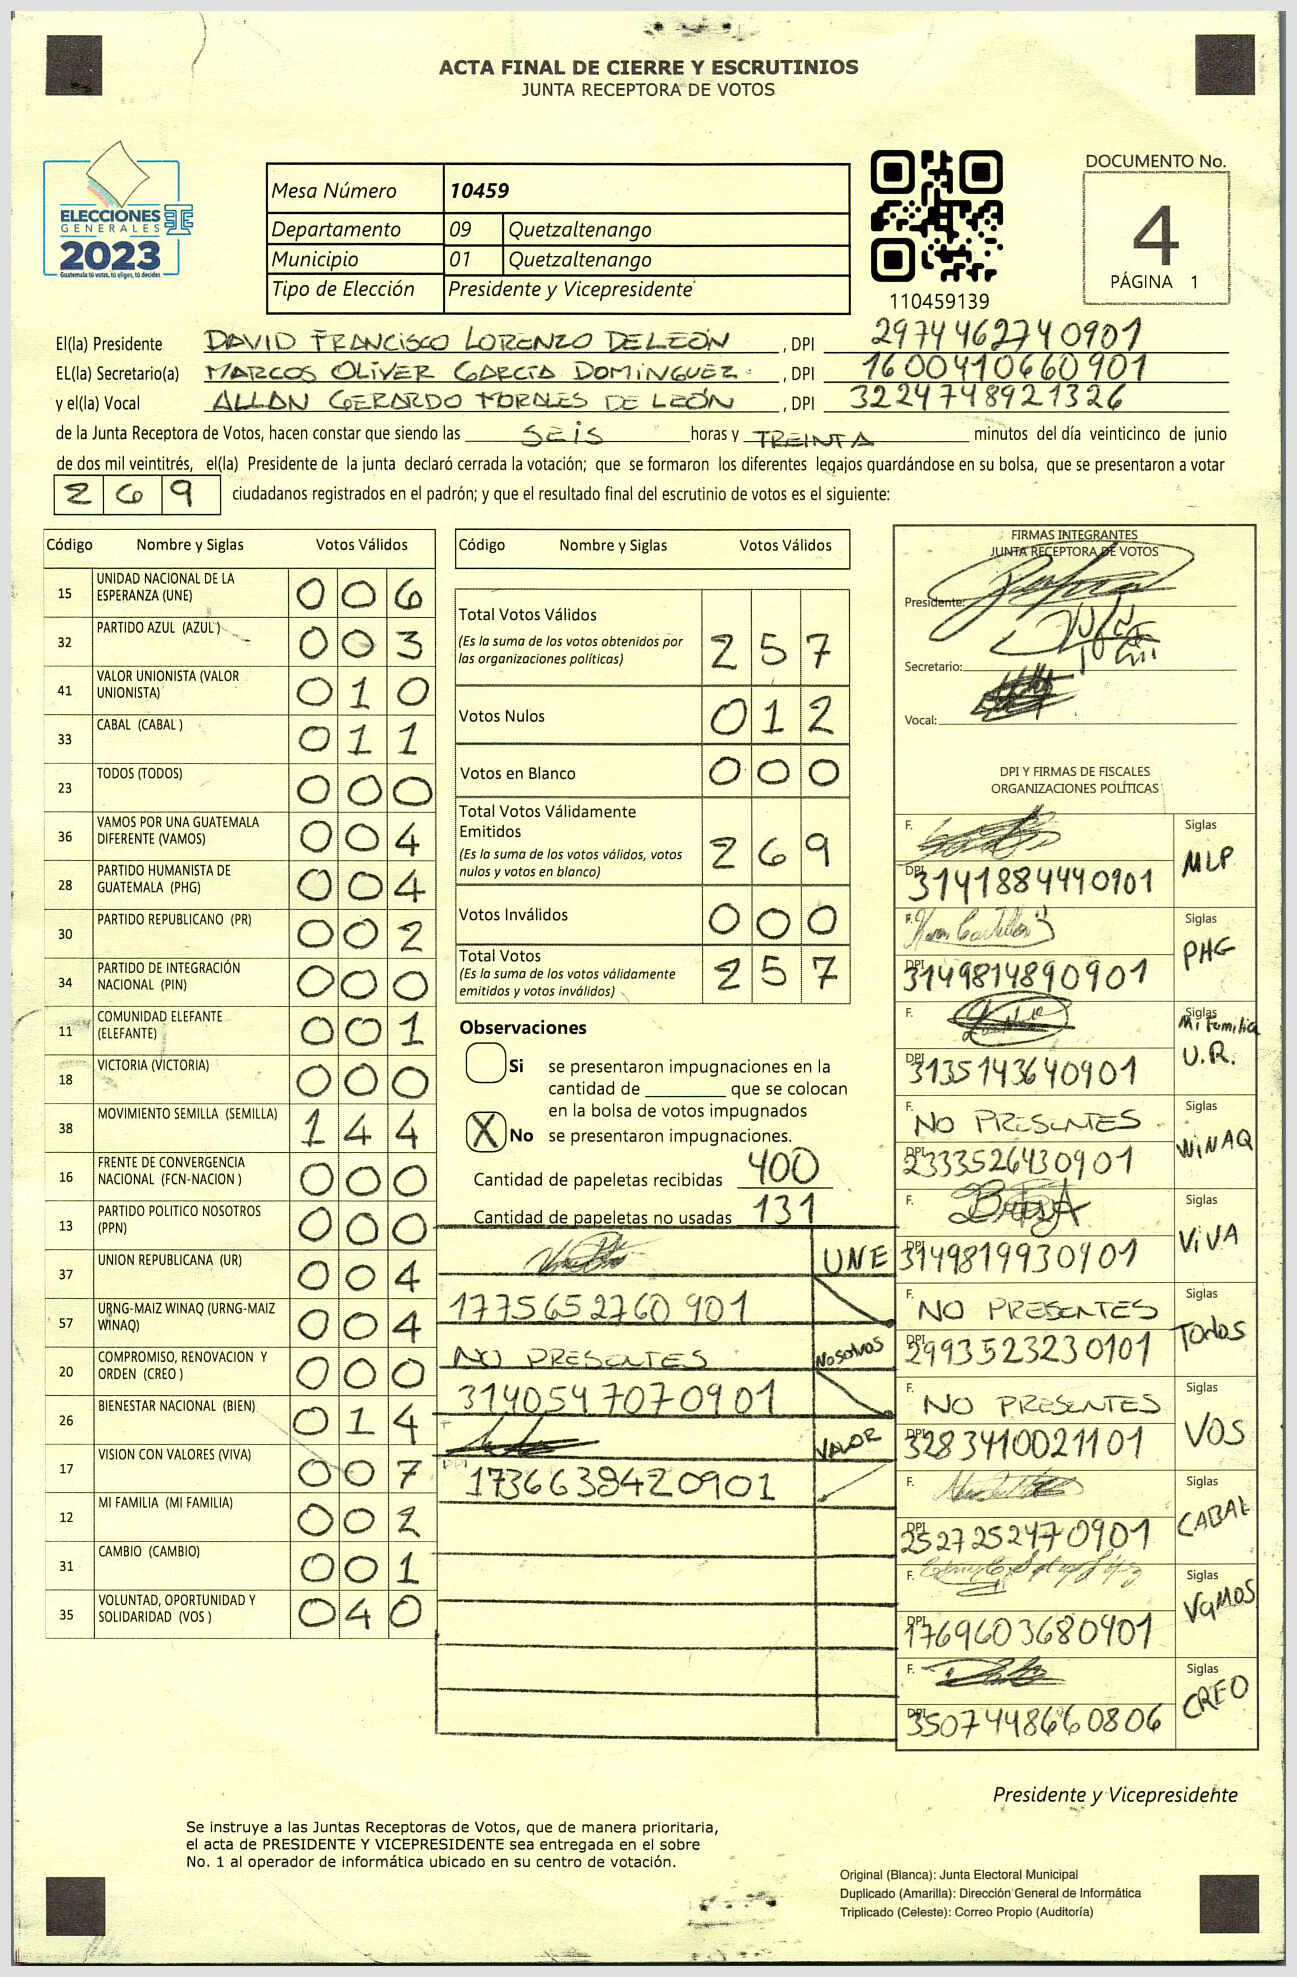 ACTA FINAL DE CIERRE Y ESCRUTINIOS
JUNTA RECEPTORA DE VOTOS
ELECCIONES
GENERALES
2023
Guatemala tú votas, tú eliges, tú decides
Mesa Número 10459
Departamento 09 Quetzaltenango
Municipio 01 Quetzaltenango
Tipo de Elección Presidente y Vicepresidente
110459139
DOCUMENTO No.
4
PÁGINA 1
El(la) Presidente DAVID FRANCISCO LORENZO DELEÓN , DPI 2974462740901
EL(la) Secretario(a) MARCOS OLIVER GARCÍA DOMÍNGUEZ , DPI 1600410660901
y el(la) Vocal ALLAN GERARDO MORALES DE LEÓN , DPI 3224748921326
de la Junta Receptora de Votos, hacen constar que siendo las SEIS horas y TREINTA minutos del día veinticinco de junio
de dos mil veintitrés, el(la) Presidente de la junta declaró cerrada la votación; que se formaron los diferentes legajos guardándose en su bolsa, que se presentaron a votar
269 ciudadanos registrados en el padrón; y que el resultado final del escrutinio de votos es el siguiente:
Código Nombre y Siglas Votos Válidos
15 UNIDAD NACIONAL DE LA ESPERANZA (UNE) 006
32 PARTIDO AZUL (AZUL) 003
41 VALOR UNIONISTA (VALOR UNIONISTA) 010
33 CABAL (CABAL ) 011
23 TODOS (TODOS) 000
36 VAMOS POR UNA GUATEMALA DIFERENTE (VAMOS) 004
28 PARTIDO HUMANISTA DE GUATEMALA (PHG) 004
30 PARTIDO REPUBLICANO (PR) 002
34 PARTIDO DE INTEGRACIÓN NACIONAL (PIN) 000
11 COMUNIDAD ELEFANTE (ELEFANTE) 001
18 VICTORIA (VICTORIA) 000
38 MOVIMIENTO SEMILLA (SEMILLA) 144
16 FRENTE DE CONVERGENCIA NACIONAL (FCN-NACION ) 000
13 PARTIDO POLITICO NOSOTROS (PPN) 000
37 UNION REPUBLICANA (UR) 004
57 URNG-MAIZ WINAQ (URNG-MAIZ WINAQ) 004
20 COMPROMISO, RENOVACION Y ORDEN (CREO ) 000
26 BIENESTAR NACIONAL (BIEN) 014
17 VISION CON VALORES (VIVA) 007
12 MI FAMILIA (MI FAMILIA) 002
31 CAMBIO (CAMBIO) 001
35 VOLUNTAD, OPORTUNIDAD Y SOLIDARIDAD (VOS ) 040
Código Nombre y Siglas Votos Válidos
Total Votos Válidos 257
(Es la suma de los votos obtenidos por
las organizaciones políticas)
Votos Nulos 012
Votos en Blanco 000
Total Votos Válidamente
Emitidos 269
(Es la suma de los votos válidos, votos
nulos y votos en blanco)
Votos Inválidos 000
Total Votos 257
(Es la suma de los votos válidamente
emitidos y votos inválidos)
Observaciones
Si se presentaron impugnaciones en la
cantidad de ________ que se colocan
en la bolsa de votos impugnados
X No se presentaron impugnaciones.
Cantidad de papeletas recibidas 400
Cantidad de papeletas no usadas 131
UNE
1775652760901
NO PRESENTES Nosotros
3140547070901
VALOR
1736638420901
FIRMAS INTEGRANTES
JUNTA RECEPTORA DE VOTOS
Presidente:
Secretario:
Vocal:
DPI Y FIRMAS DE FISCALES
ORGANIZACIONES POLÍTICAS
F. Siglas
DPI 3141884440901 MLP
F. Siglas
DPI 3149814890901 PHG
F. Siglas
Mi familia
DPI 3135143640901 U.R.
F. NO PRESENTES Siglas
DPI 2333526430901 WINAQ
F. Siglas
DPI 3149819930901 ViVA
F. NO PRESENTES Siglas
DPI 2993523230101 Todos
F. NO PRESENTES Siglas
DPI 3283410021101 VOS
F. Siglas
DPI 2527252470901 CABAL
F. Siglas
DPI 1769603680901 VaMOS
F. Siglas
DPI 3507448660806 CREO
Presidente y Vicepresidente
Se instruye a las Juntas Receptoras de Votos, que de manera prioritaria,
el acta de PRESIDENTE Y VICEPRESIDENTE sea entregada en el sobre
No. 1 al operador de informática ubicado en su centro de votación.
Original (Blanca): Junta Electoral Municipal
Duplicado (Amarilla): Dirección General de Informática
Triplicado (Celeste): Correo Propio (Auditoría)